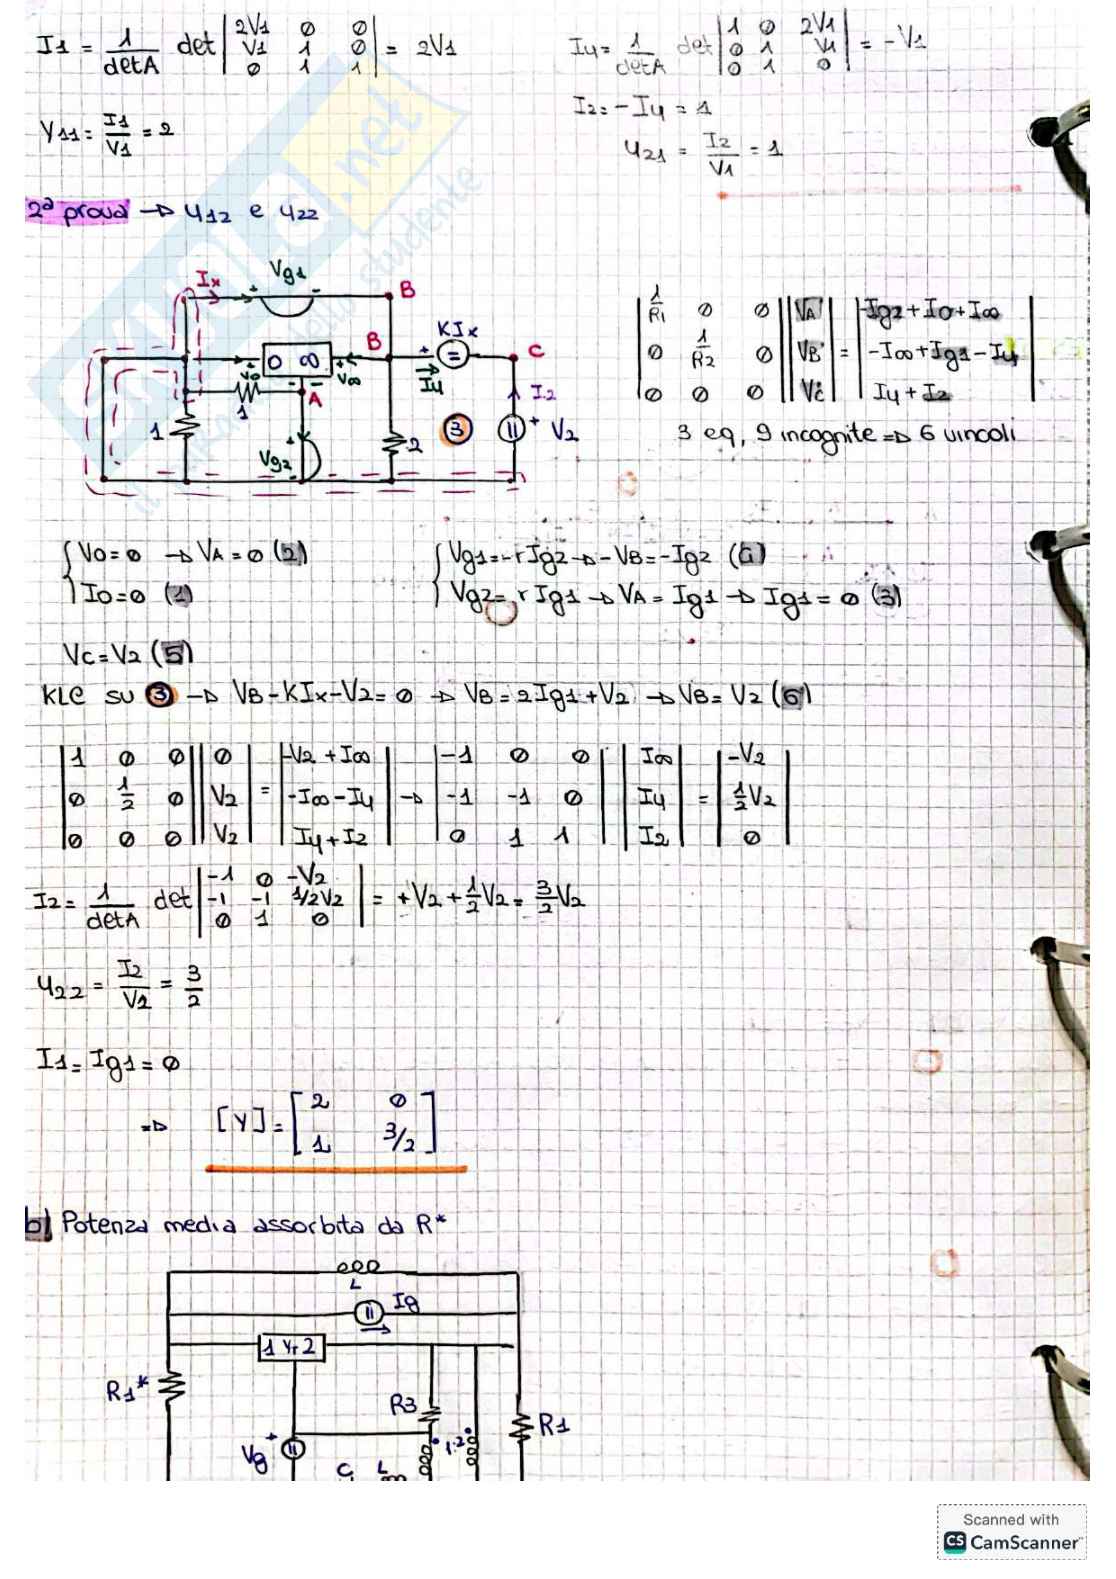 I1 = 1/detA det |2V1 0 0; V1 1 0; 0 1 1| = 2V1
I4 = 1/detA det |1 0 2V1; 0 1 V1; 0 1 0| = -V1
I2 = -I4 = 1
Y11 = I1/V1 = 2
Y21 = I2/V1 = 1
2ª prova → Y12 e Y22
Ix Vg1 B
KIx
B C
0 ∞
V0 V∞ I4
A I2
1 1 Vg2 2 3 V2
|1/R1 0 0; 0 1/R2 0; 0 0 0| |VA; VB; VC| = |-Ig2+I0+I∞; -I∞+Ig1-I4; I4+I2|
3 eq, 9 incognite => 6 vincoli
V0=0 → VA=0 (2)
I0=0 (1)
Vg1=-rIg2 → -VB=-Ig2 (4)
Vg2=rIg1 → VA=Ig1 → Ig1=0 (3)
VC=V2 (5)
KLC su 3 → VB-KIx-V2=0 → VB=2Ig1+V2 → VB=V2 (6)
|1 0 0; 0 1/2 0; 0 0 0| |0; V2; V2| = |-V2+I∞; -I∞-I4; I4+I2| → |-1 0 0; -1 -1 0; 0 1 1| |I∞; I4; I2| = |-V2; 1/2V2; 0|
I2 = 1/detA det |-1 0 -V2; -1 -1 1/2V2; 0 1 0| = +V2+1/2V2 = 3/2V2
Y22 = I2/V2 = 3/2
I1=Ig1=0
=> [Y] = [2 0; 1 3/2]
b) Potenza media assorbita da R*
L
Ig
1 Yr 2
R1*
R3
R1
Vg
1:2
C L
Scanned with
CS CamScanner